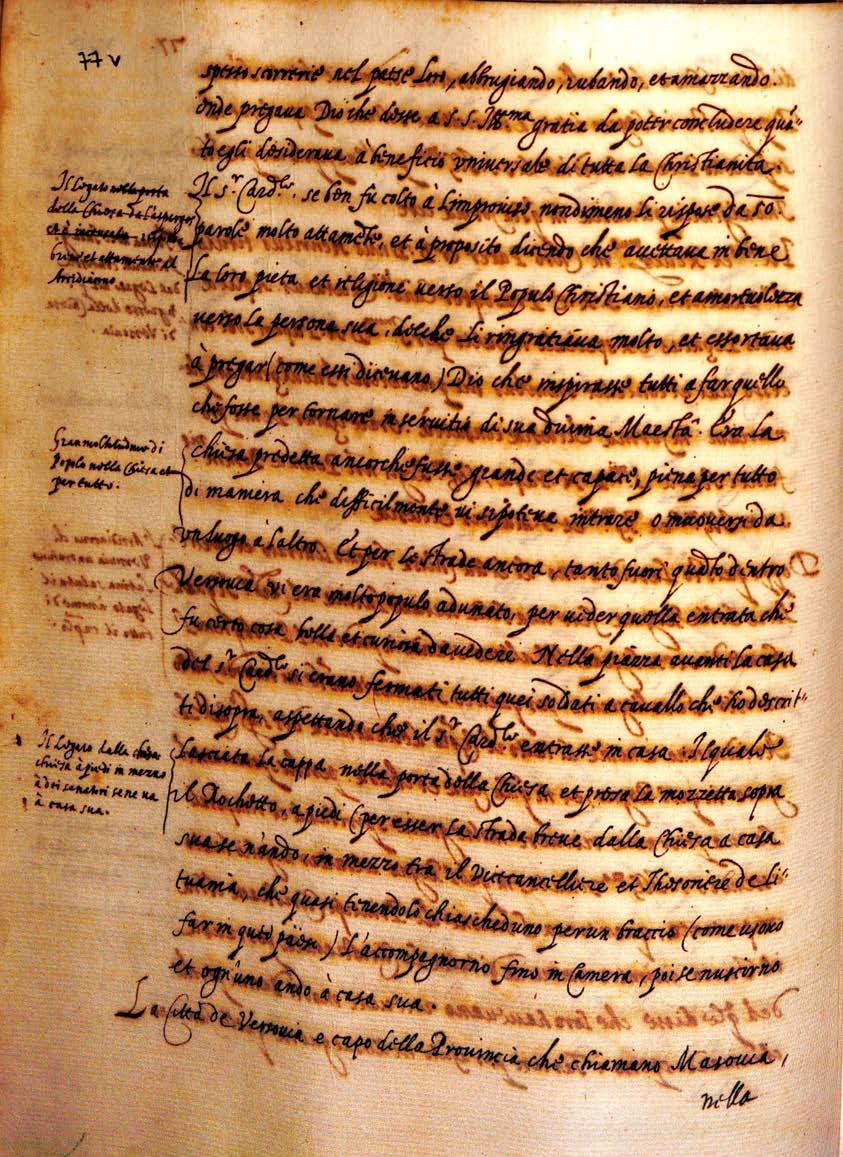 77 v
spesso scorrerie nel paese loro, abbrugiando, rubando, et amazzando.
onde pregava Dio che desse a S. S. Ill.ma gratia da poter concludere quā-
to egli desiderava à beneficio universale di tutta la Christianità.
Il s.r Card.le, se ben fu colto à l'improviso nondimeno li rispose da 50.
parole molto attamēte, et à proposito dicendo che accettava in bene
la loro pieta et religione verso il Populo Christiano, et amorevolezza
verso la persona sua, delche li ringratiava molto, et essortava
à pregar (come essi dicevano) Dio che inspirasse tutti a far quello
che fosse per tornare in servitio di sua divina Maestà. Era la
chiesa predetta ancorche fusse grande et capace, piena per tutto
di maniera che difficilmente vi si poteva intrare o muoversi da
un luogo à l'altro. Et per le strade ancora, tanto fuori quāto dentro
vi era molto populo adunato, per veder quella entrata che
fu certo cosa bella et curiosa da vedere. Nella piazza avanti la casa
del s.r Card.le si erano fermati tutti quei soldati a cavallo che ho descrit-
ti disopra, aspettando che il s.r Card.le entrasse in casa. Il quale
lasciata la cappa nella porta della Chiesa et presa la mozzetta sopra
il Rochetto, a piedi (per esser la strada breve dalla Chiesa a casa
sua se n'andò, in mezzo tra il Vicecancelliere et Thesoriere de Li-
tuania, che quasi tenendolo chiascheduno per un braccio (come usono
far in quel paese) l'accompagnorno fino in Camera, poi se nuscirno
et ogn'uno andò à casa sua.
La Città de Versovia e capo della Provincia che chiamano Masovia,
nella
Il Legato nella porta
della Chiesa da l'asperges
breve et attamente al
Arcidiacono
Gran moltitudine di
Popolo nella Chiesa et
per tutto.
Il Legato dalla
chiesa à piedi in mezzo
à doi senatori se ne va
à casa sua.